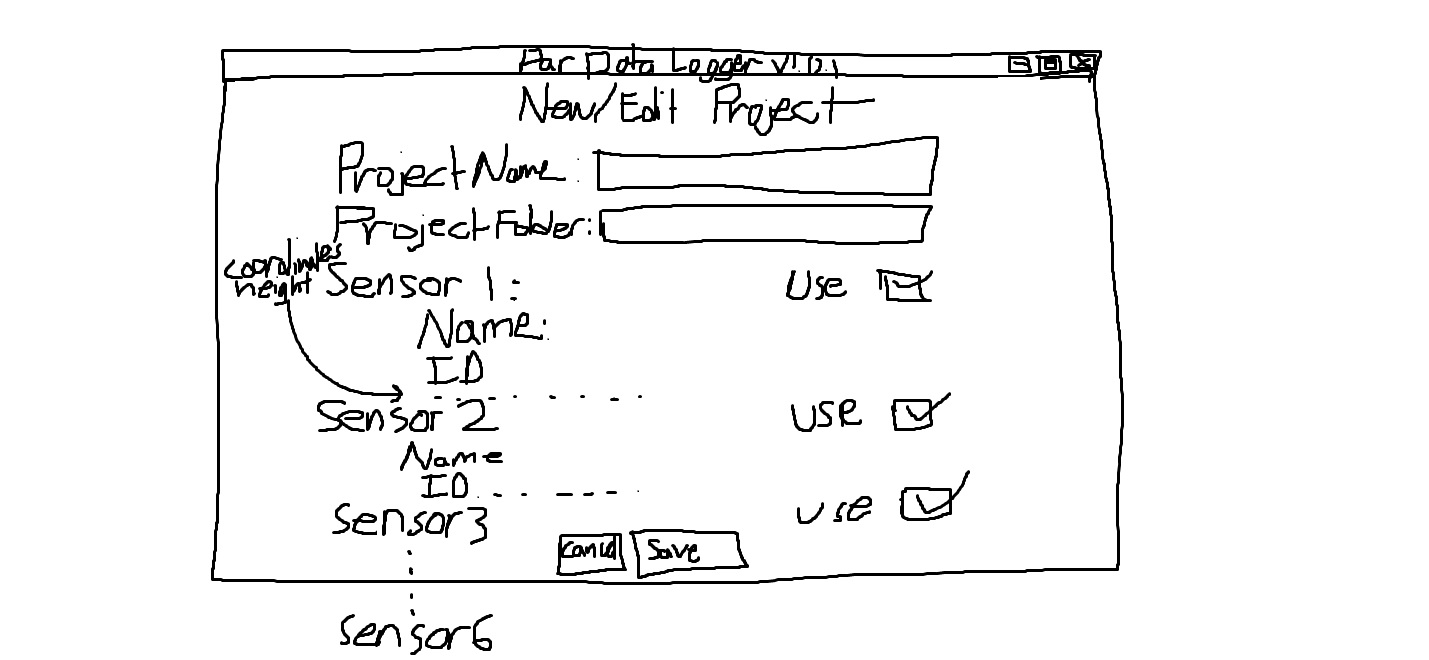 Par Data Logger v1.0.1
New/Edit Project
Project Name :
Project Folder:
coordinates
height
Sensor 1: Use
Name:
ID
Sensor 2 USE
Name
ID
Sensor 3 Use
Cancel Save
Sensor 6